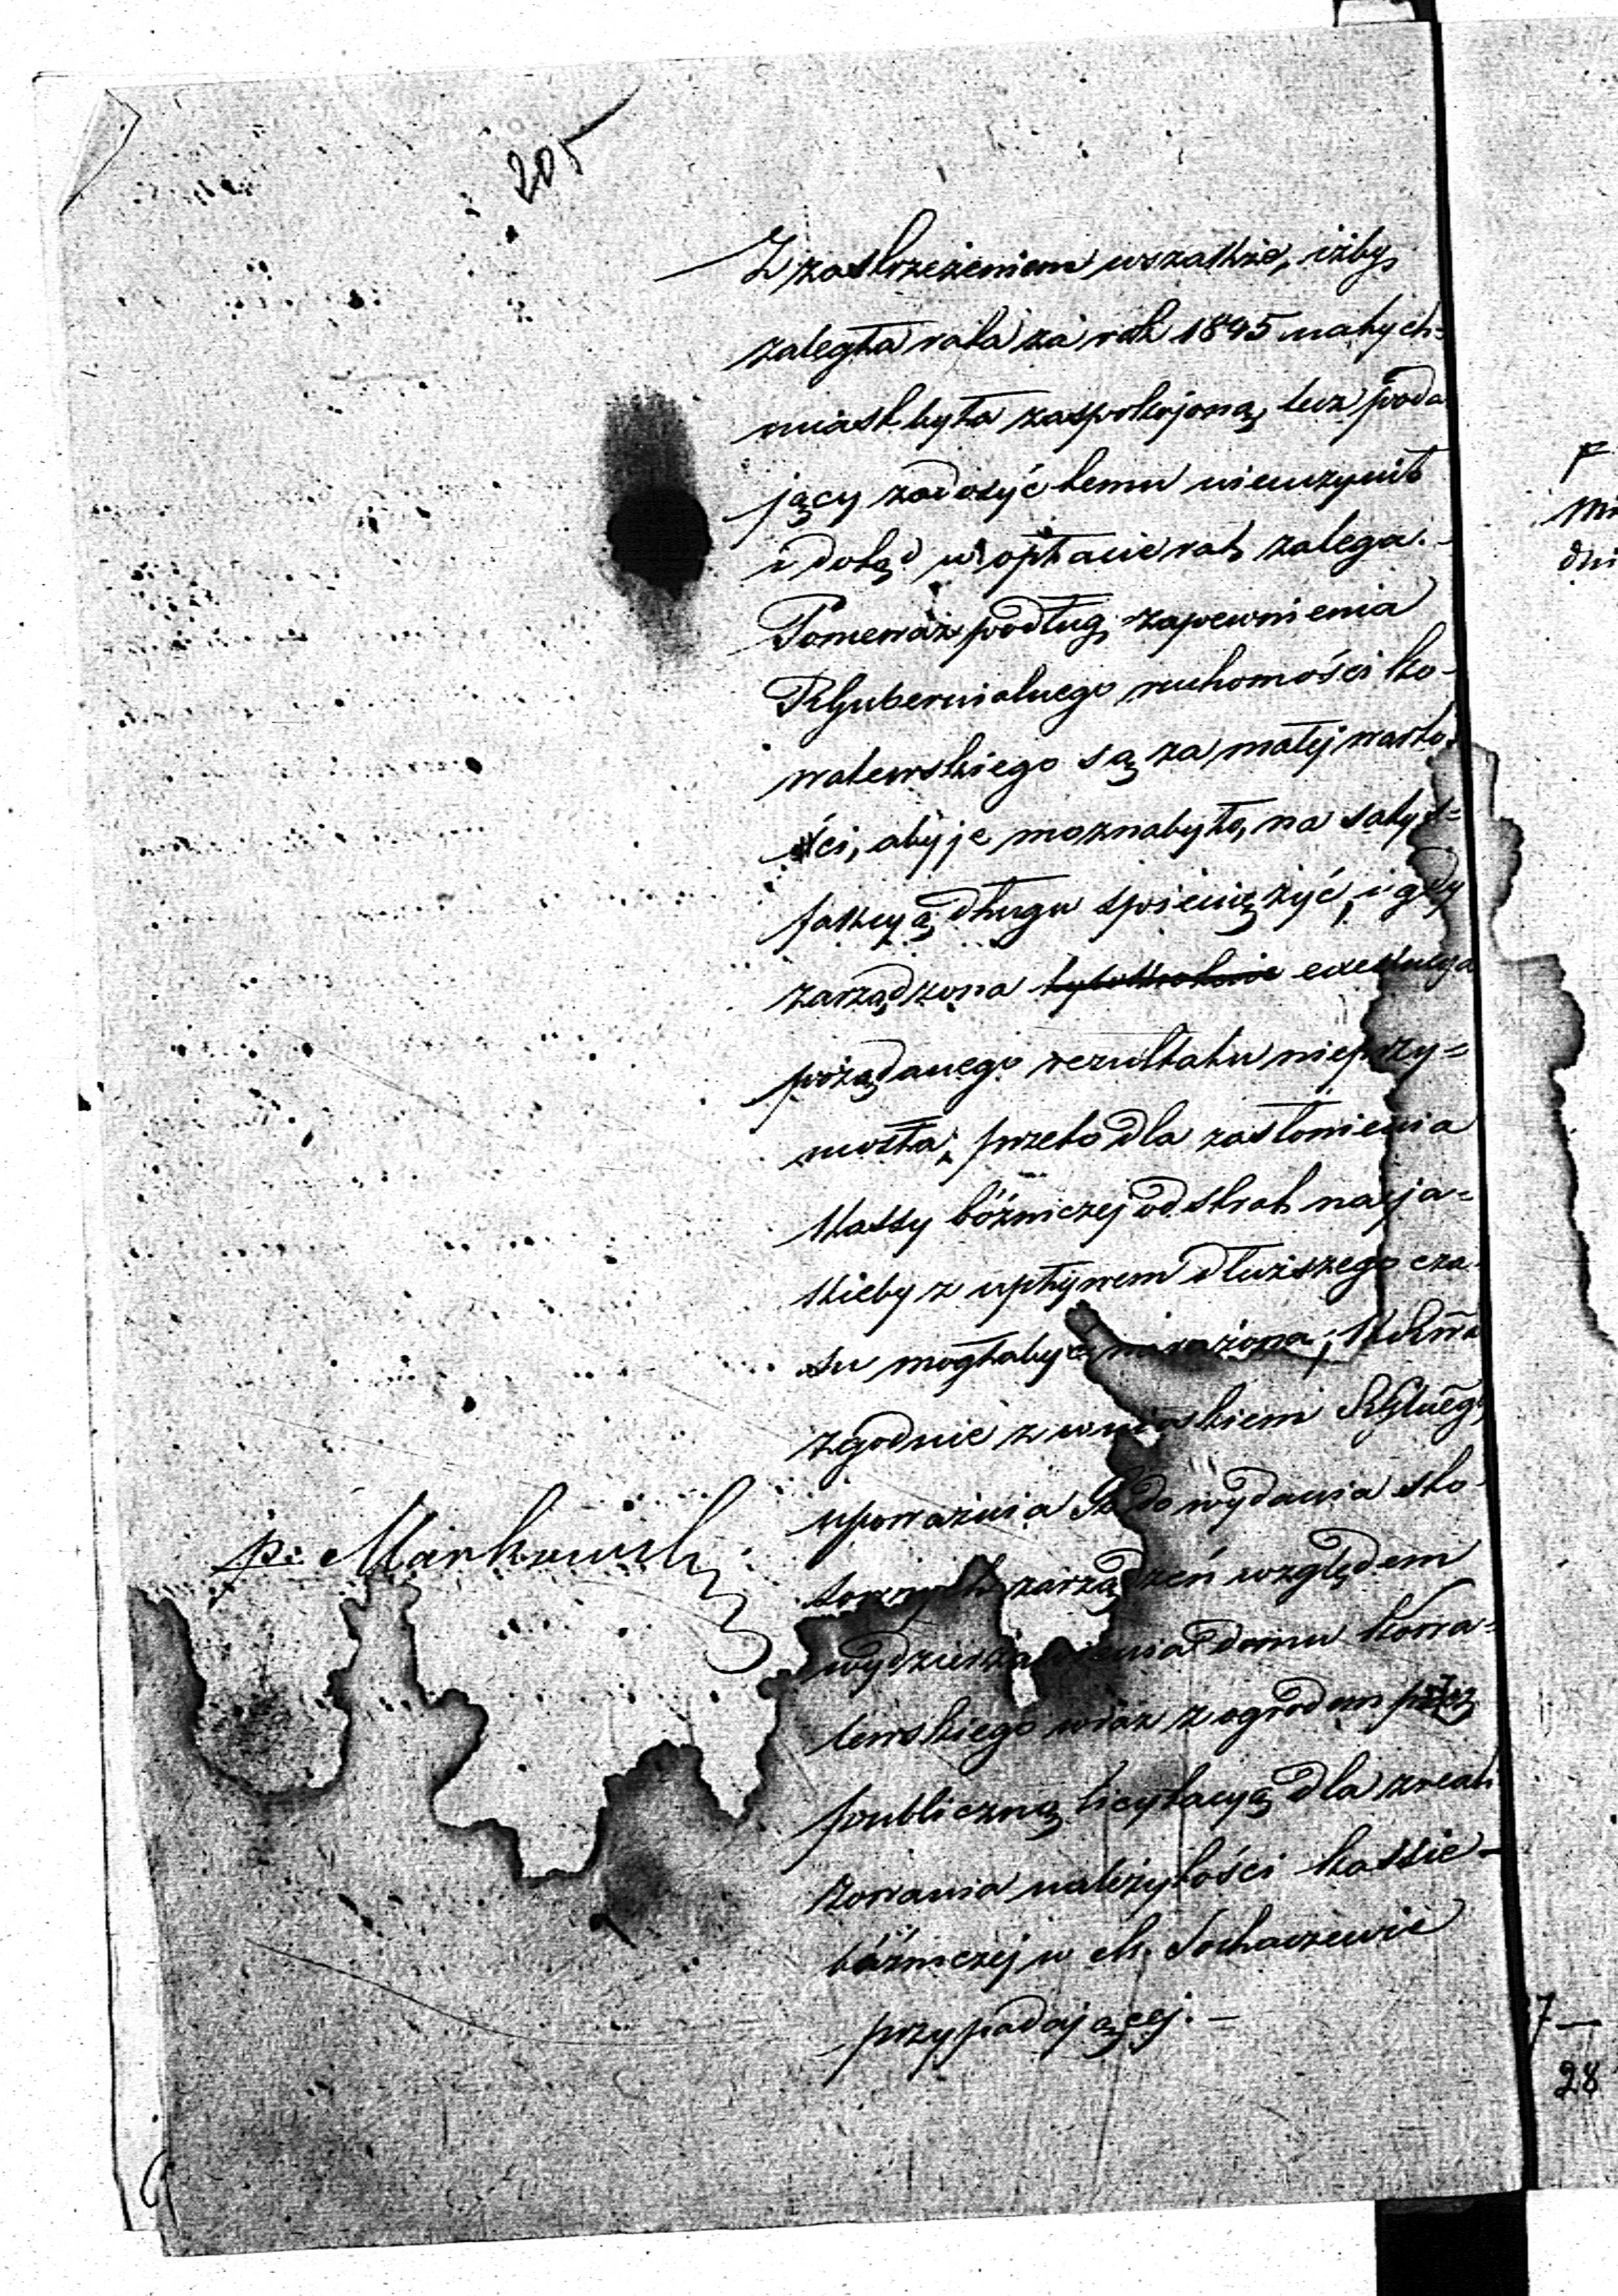 205
Z zastrzeżeniem wszakże, iżby
zaległa rata za rok 1845 natych=
miast była zaspokojoną, lecz poda
jący zadosyć temu nieuczynił
i dotąd w opłacie rat zalega. -
Ponieważ podług zapewnienia
RGubernialnego ruchomości Ko-
walewskiego są za małej warto
ści, aby je możnabyło, na satys=
fakcyą długu spieniężyć, i gdy
zarządzona exekucya
pożądanego rezultatu nieprzy=
niosła; przeto dla zasłonienia
Kassy bóżniczej od strat na ja=
kieby z upływem dłuższego cza
su mogłabyć narażona;
zgodnie z wnioskiem
upoważnia Go do wydania sto-
sownych zarządzeń względem
wydzierżawienia domu Kowa=
lewskiego wraz z ogrodem przez
publiczną licytacyą dla zreali
zowania należytości kassie -
bóżniczej w M. Sochaczewie
przypadającej. -
p: Markowski
28